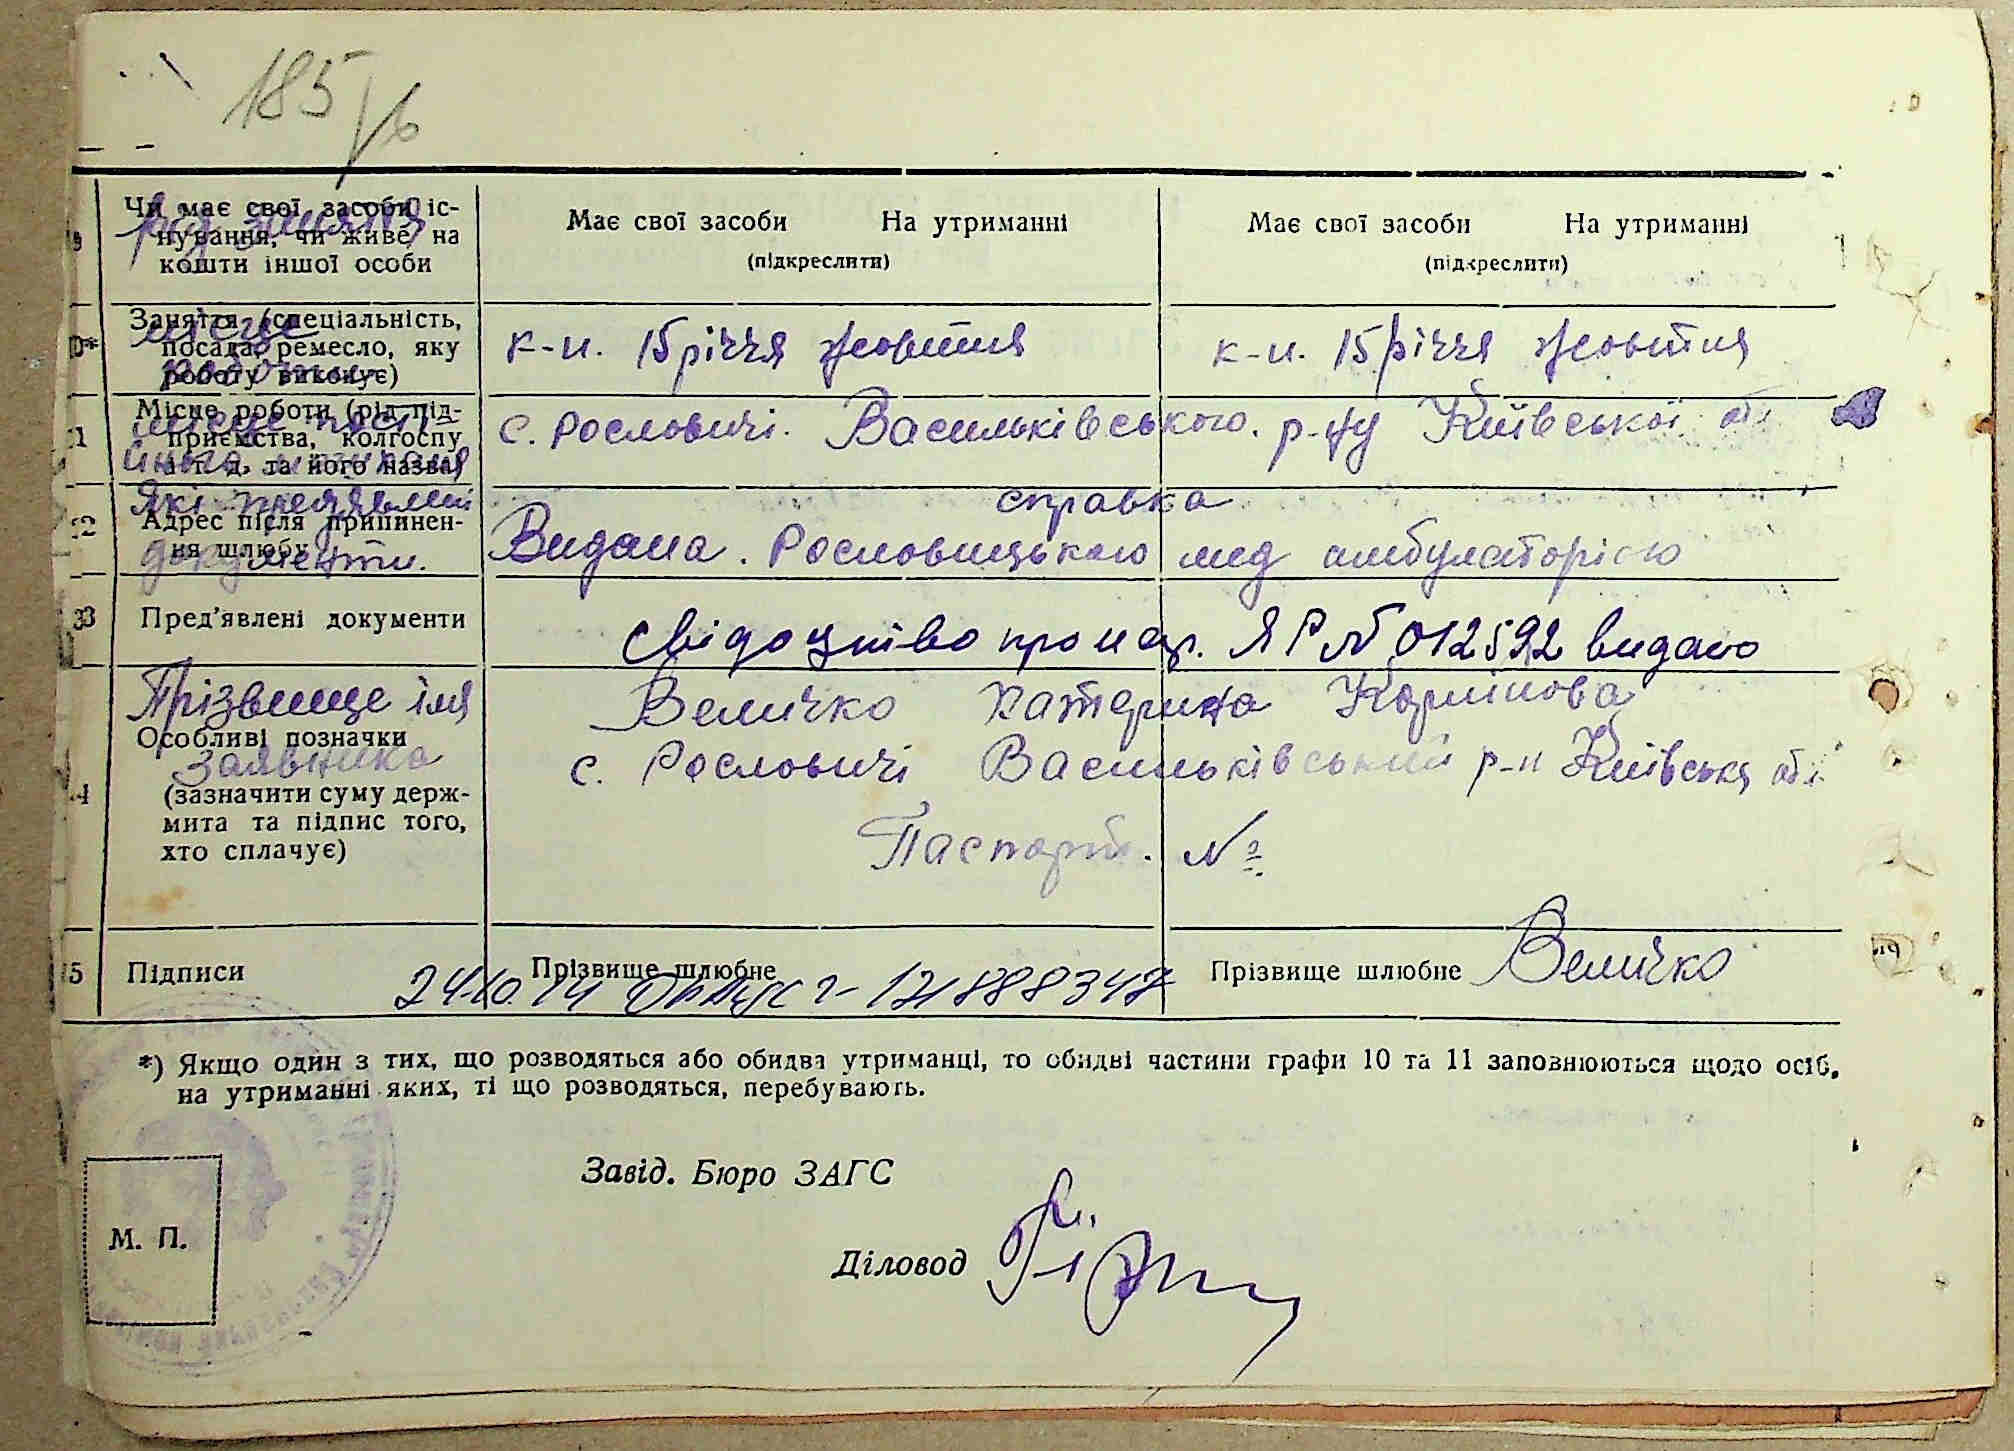 185/6
9
Чи має свої засоби іс-
нування, чи живе на
кошти іншої особи
рід заняття
Має свої засоби На утриманні
(підкреслити)
Має свої засоби На утриманні
(підкреслити)
10*
Заняття (спеціальність,
посада, ремесло, яку
роботу виконує)
місце
роботи
к-п. 15 річчя жовтня
к-п. 15 річчя жовтня
11
Місце роботи (рід під-
приємства, колгоспу
а т. д. та його назва)
місце пості-
с. Рословичі. Васильківського. р-ну Київської обл
12
Адрес після припинен-
ня шлюбу
Які пред'явлені
документи.
справка
Видана. Рословицькою мед амбулаторією
13
Пред'явлені документи
Свідоцтво про нар. ЯР № 012592 видано
14
Прізвище імя
заявника
Особливі позначки
(зазначити суму держ-
мита та підпис того,
хто сплачує)
Величко Катерина Карпівова
с. Рословичі Васильківський р-н Київська обл
Паспорт. №
15
Підписи
Прізвище шлюбне
24.10.14
Прізвище шлюбне Величко
*) Якщо один з тих, що розводяться або обидва утриманці, то обидві частини графи 10 та 11 заповнюються щодо осіб,
на утриманні яких, ті що розводяться, перебувають.
Завід. Бюро ЗАГС
М. П.
Діловод